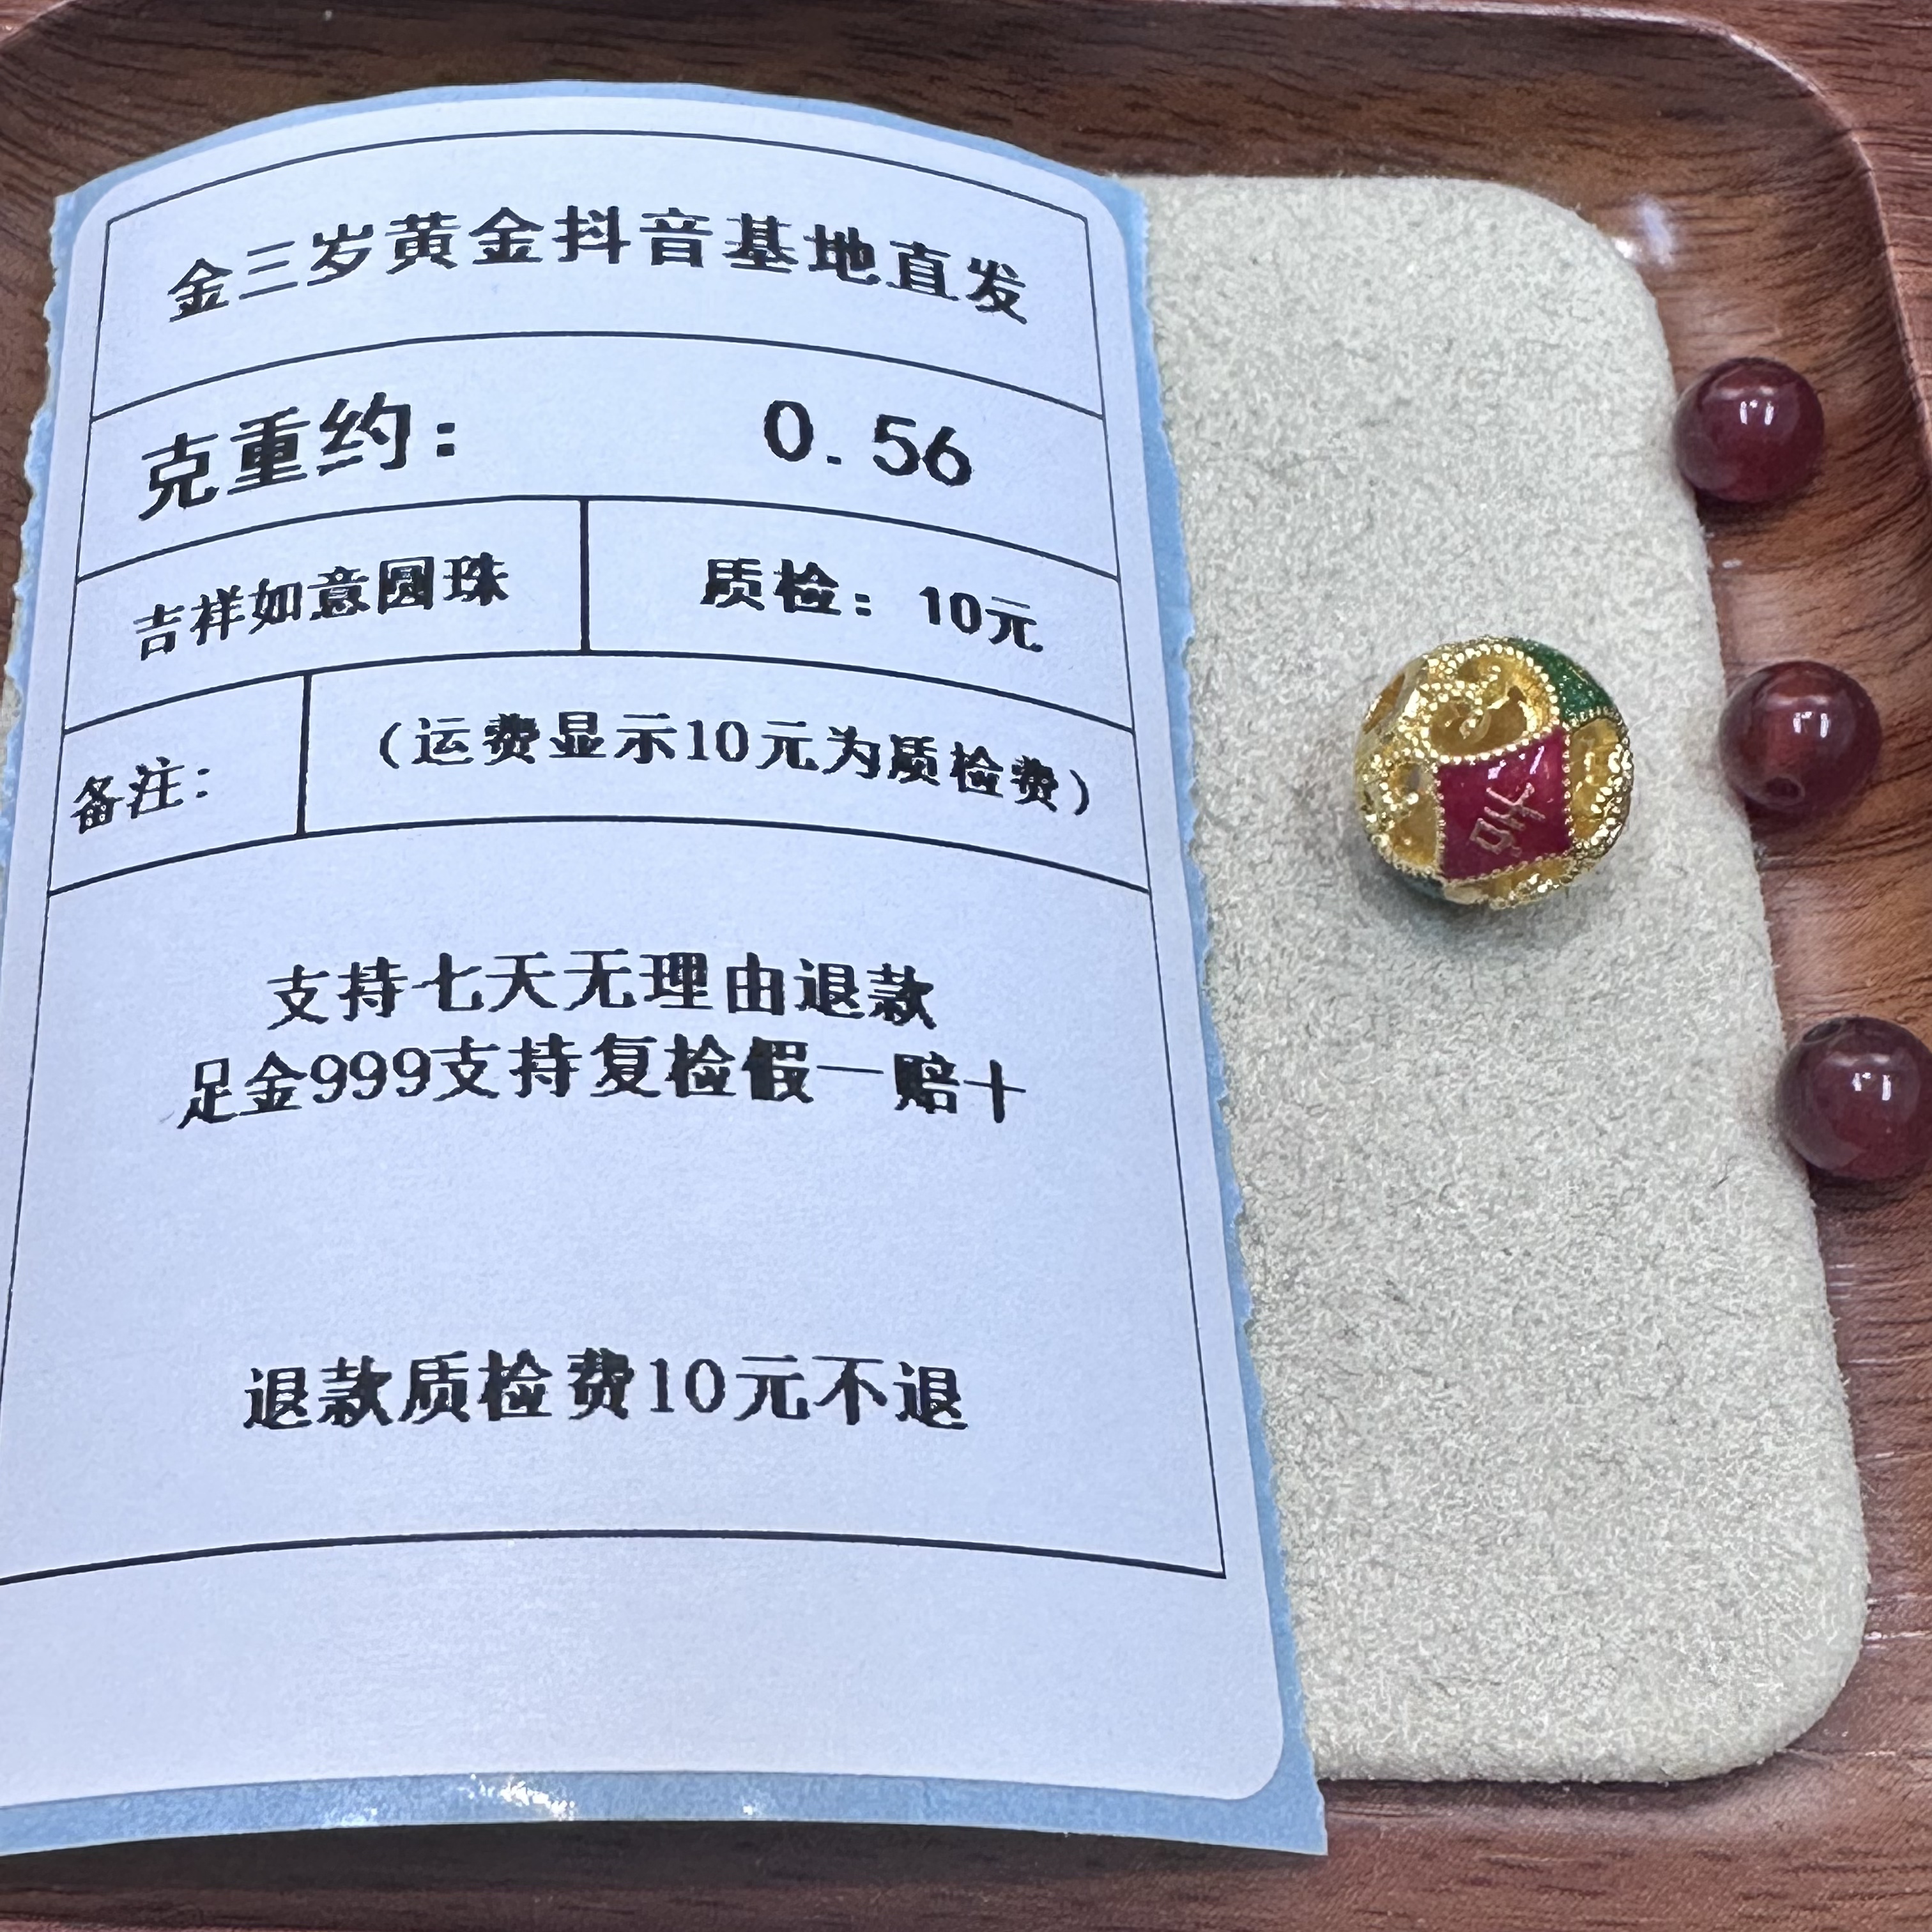 金三岁黄金抖音基地直发
克重约： 0.56
吉祥如意圆珠 质检：10元
备注： （运费显示10元为质检费）
支持七天无理由退款
足金999支持复检假一赔十
退款质检费10元不退
吉